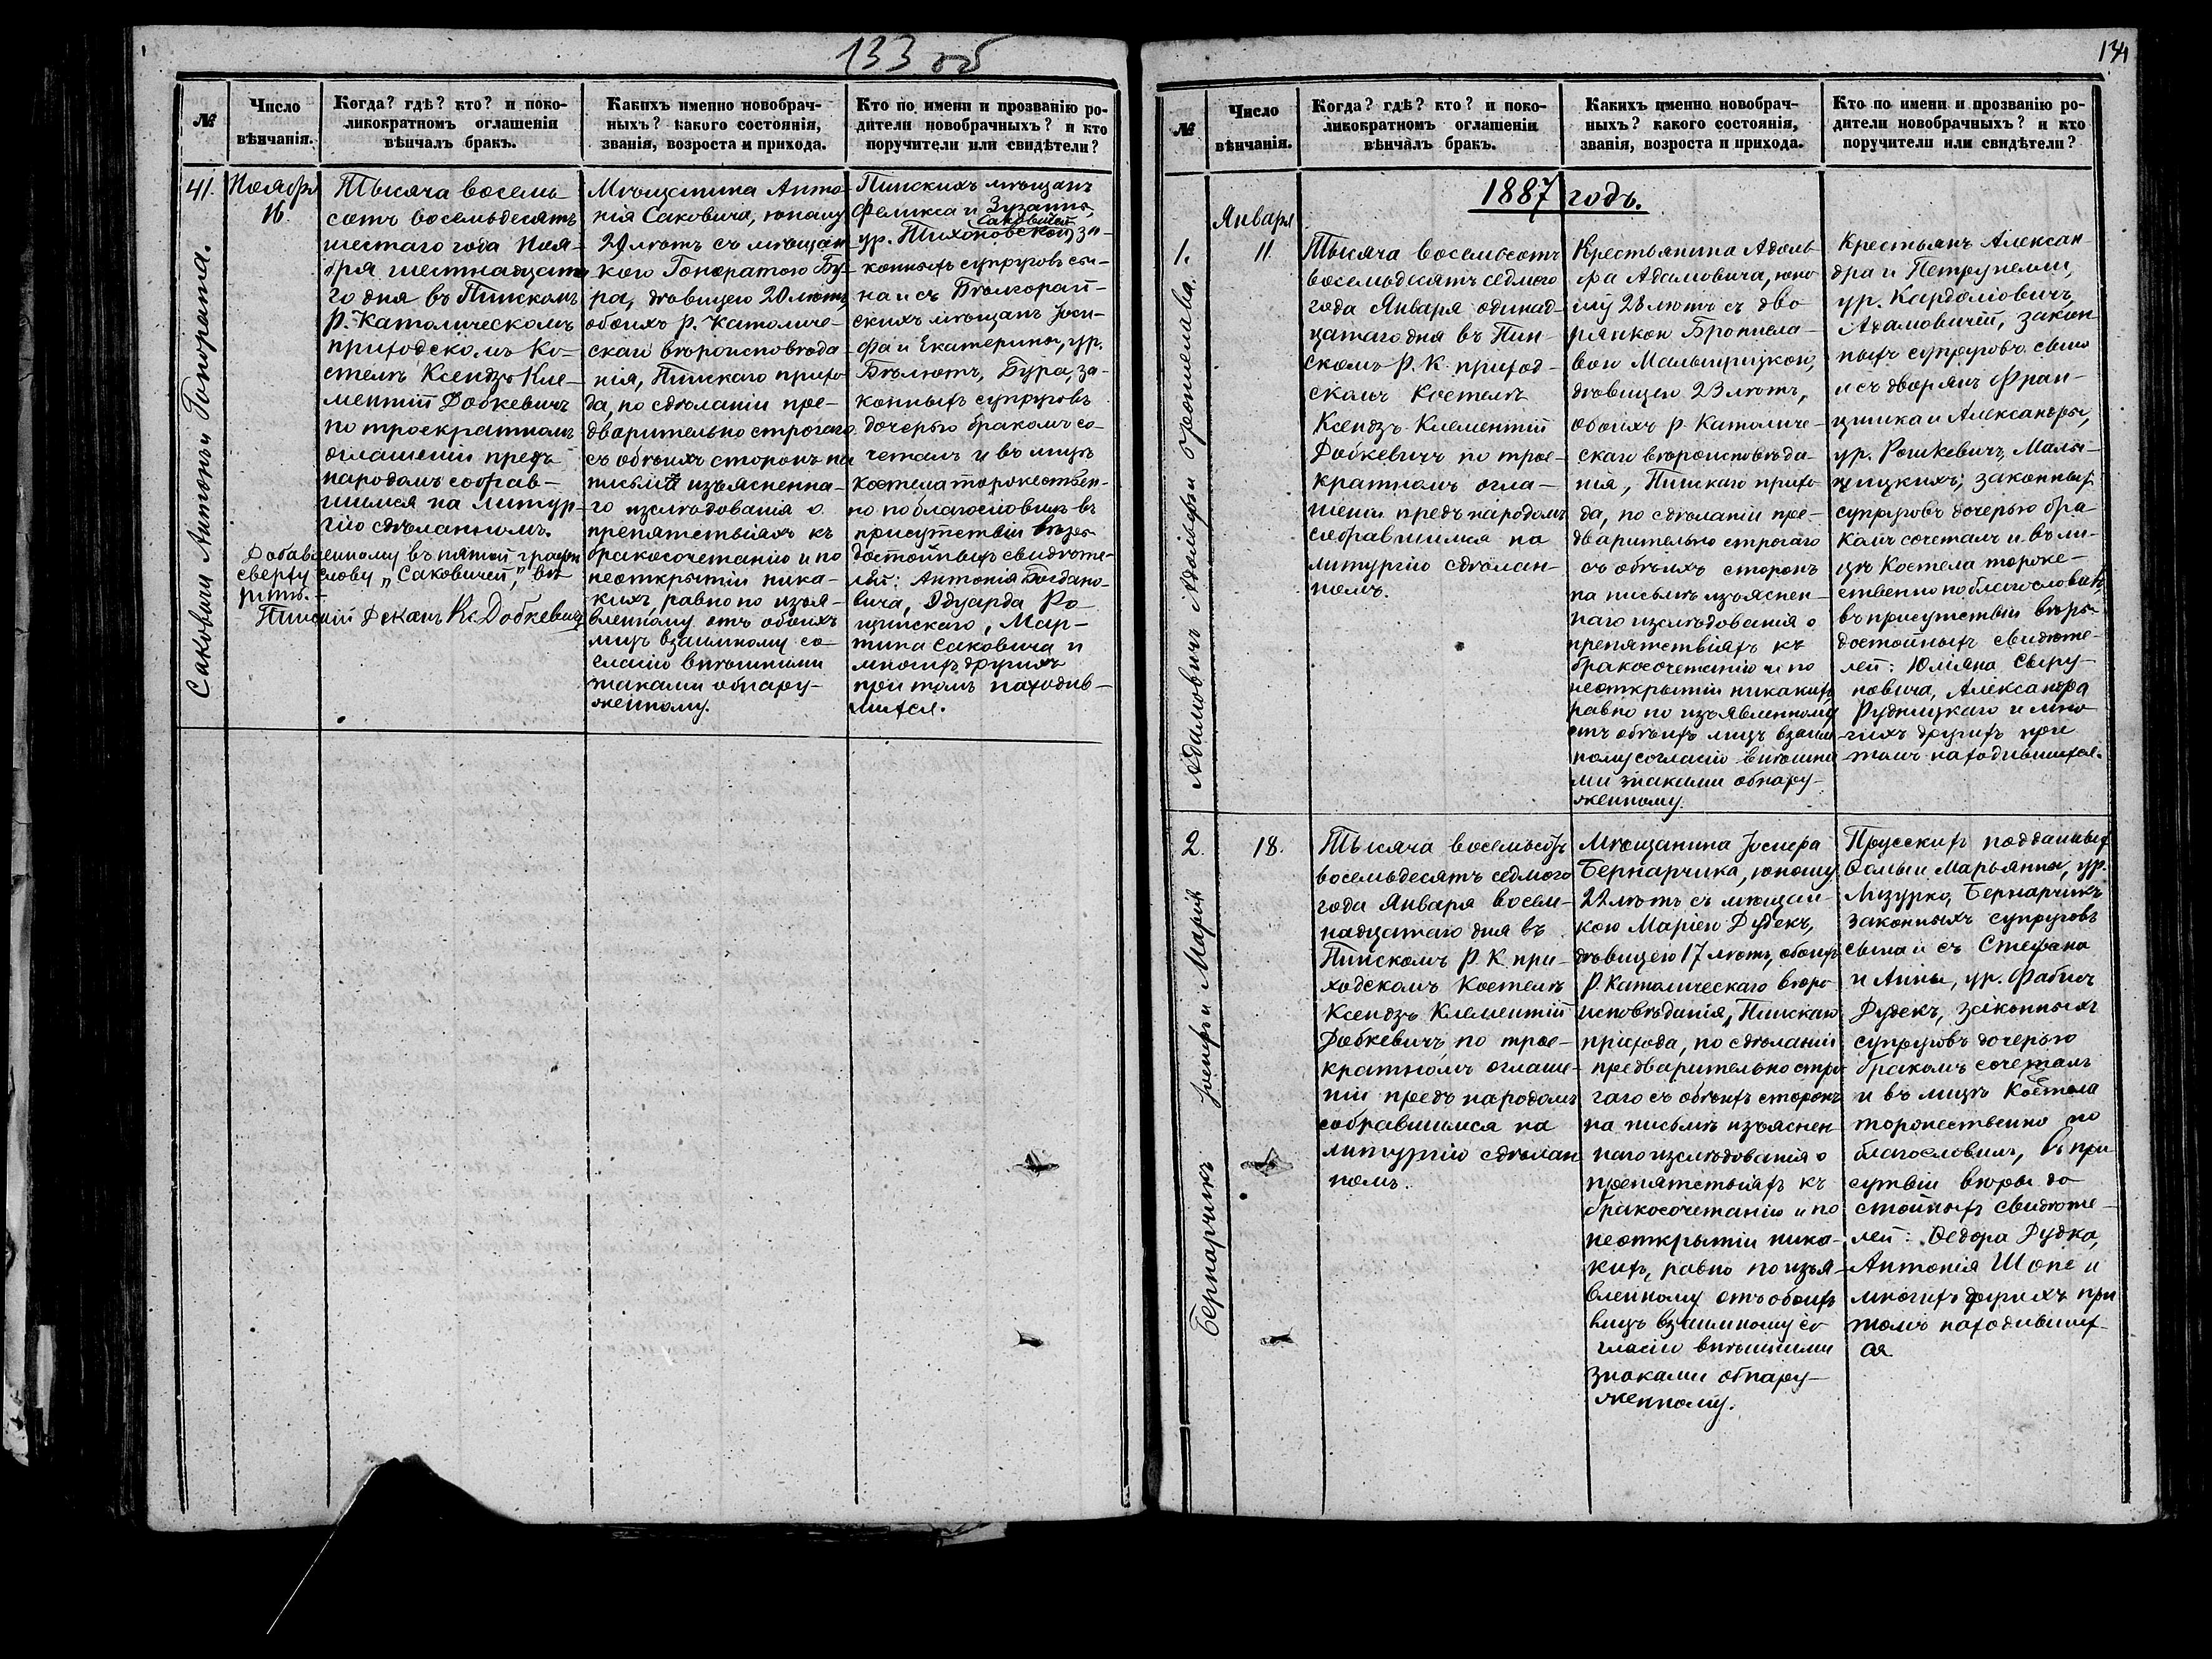 133 об
№
Число
вѣнчанія.
Когда? гдѣ? кто? и поко-
ликократномъ оглашеніи
вѣнчалъ бракъ.
Какихъ именно новобрач-
ныхъ? какого состоянія,
званія, возроста и прихода.
Кто по имени и прозванію ро-
дители новобрачныхъ? и кто
поручители или свидѣтели?
41.
Саковичи Антонъ и Гонората.
Ноября
16.
Тысяча восемь
сотъ восемьдесятъ
шестаго года Ноя-
бря шестнадцата
го дня въ Пинскомъ
Р.-Католическомъ
приходскомъ Ко-
стелѣ Ксендзъ Кле-
ментій Добкевичъ
по троекратномъ
оглашеніи предъ
народомъ собрав-
шимся на литур-
гію сдѣланномъ.
Добавленному въ пятой графѣ
сверху слову „Саковичей," вѣ-
рить.-
Пинскій Деканъ Кс. Добкевичъ
Мѣщанина Анто-
нія Саковича, юношу
29 лѣтъ съ мѣщан
кою Гоноратою Бу-
ра, дѣвицею 20 лѣтъ,
обоихъ Р. Католиче-
скаго вѣроисповѣда
нія, Пинскаго прихо-
да, по сдѣланіи пре-
дварительно строгаго
съ обѣихъ сторонъ на
письмѣ изъясненна-
го изслѣдованія о
препятствіяхъ къ
бракосочетанію и по
неоткрытіи ника-
кихъ, равно по изъя-
вленному отъ обоихъ
лицъ взаимному со-
гласію внѣшними
знаками обнару-
женному.
Пинскихъ мѣщанъ
Феликса и Зузанны,
Саковичей
ур. Тихоновской, за-
конныхъ супруговъ сы-
на и съ Бѣлгорай-
скихъ мѣщанъ Іоси-
фа и Екатерины, ур.
Бѣлютъ, Бура, за-
конныхъ супруговъ
дочерью бракомъ со-
четалъ и въ лицѣ
костела торжествен-
но поблагословилъ въ
присутствіи вѣро-
достойныхъ свидѣте-
лей: Антонія Богдано-
вича, Эдуарда Ро-
щинскаго, Мар-
тина Саковича и
многихъ другихъ
при томъ находив-
шихся.
134
№
Число
вѣнчанія.
Когда? гдѣ? кто? и поко-
ликократномъ оглашеніи
вѣнчалъ бракъ.
Какихъ именно новобрач-
ныхъ? какого состоянія,
званія, возроста и прихода.
Кто по имени и прозванію ро-
дители новобрачныхъ? и кто
поручители или свидѣтели?
1887 годъ.
1.
Адамовичъ Адольфъ и Бронислава.
Января
11
Тысяча восемьсотъ
восемьдесятъ седмого
года Января одинад-
цатаго дня въ Пин-
скомъ Р. К. приход-
скомъ Костелѣ
Ксендзъ Клементій
Добкевичъ по трое-
кратномъ огла-
шеніи предъ народомъ
собравшимся на
литургію сдѣлан-
номъ.
Крестьянина Адоль
фа Адамовича, юно
шу 28 лѣтъ съ дво
рянкою Брониела-
вою Мальщицкою,
дѣвицею 23 лѣтъ,
обоихъ р. Католиче-
скаго вѣроисповѣда-
нія, Пинскаго прихо-
да, по сдѣланіи пре-
дварительно строгаго
съ обѣихъ сторонъ
на письмѣ изъяснен-
наго изслѣдованія о
препятствіяхъ къ
бракосочетанію и по
неоткрытіи никакихъ,
равно по изъявленному
отъ обѣихъ лицъ взаим
ному согласію внѣшни
ми знаками обнару-
женному.
Крестьянъ Алексан-
дра и Петрунели,
ур. Кардоліовичъ,
Адамовичей, закон
ныхъ супруговъ сына
и съ дворянъ Фран-
цишка и Александры,
ур. Рошкевичъ, Маль-
щицкихъ; законныхъ
супруговъ дочерью бра
комъ сочеталъ и въ ли-
цѣ Костела торже-
ственно поблагословилъ,
въ присутствіи вѣро-
достойныхъ свидѣте-
лей: Юліяна Свиру-
новича, Александра
Рудницкаго и мно
гихъ другихъ при
томъ находившихся.
2.
Бернарчикъ Іосифъ и Марія
18.
Тысяча восемьсотъ
восемьдесятъ седмого
года Января восем-
надцатаго дня въ
Пинскомъ Р. К. при-
ходскомъ Костелѣ
Ксендзъ Клементій
Добкевичъ, по трое-
кратномъ оглаше-
ніи предъ народомъ
собравшимся на
литургію сдѣлан
номъ.
Мѣщанина Іосифа
Бернарчика, юношу
22 лѣтъ съ мѣщан-
кою Маріею Дудекъ,
дѣвицею 17 лѣтъ, обоихъ
Р. Католическаго вѣро-
исповѣданія, Пинскаго
прихода, по сдѣланіи
предварительно стро
гаго съ обѣихъ сторонъ
на письмѣ изъяснен
наго изслѣдованія о
препятствіяхъ къ
бракосочетанію и по
неоткрытіи ника-
кихъ, равно по изъя-
вленному отъ обоихъ
лицъ взаимному со
гласію внѣшними
знаками обнару-
женному.
Прусскихъ подданныхъ
Фомы и Марьянны, ур.
Мизурко, Бернарчикъ
законныхъ супруговъ
сына и съ Стефана
и Анны, ур. Фабичъ
Дудекъ, законныхъ
супруговъ дочерью
бракомъ сочеталъ
и въ лицѣ Костела
торжественно по
благословилъ, въ при
сутвіи вѣры до
стойныхъ свидѣте-
лей: Ѳедора Дудка,
Антонія Шопе и
многихъ другихъ при
томъ находивших-
ся